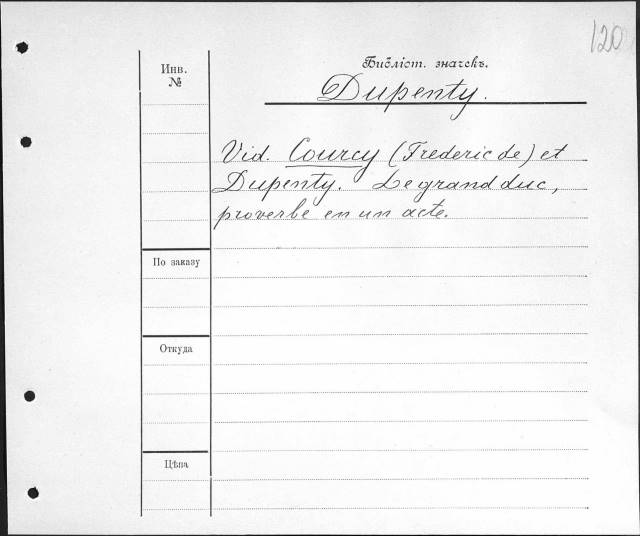 120
Инв.
№
Библіот. значекъ.
Dupenty.
Vid. Courcy (Frederic de) et
Dupenty. Le grand duc,
proverbe en un acte.
По заказу
Откуда
Цѣна